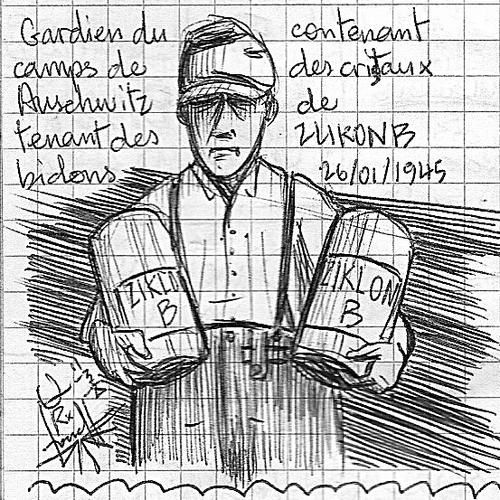 Gardien du
camps de
Auschwitz
tenant des
bidons
contenant
des cristaux
de
ZIKLON B
26/01/1945
ZIKLON
B
ZIKLON
B